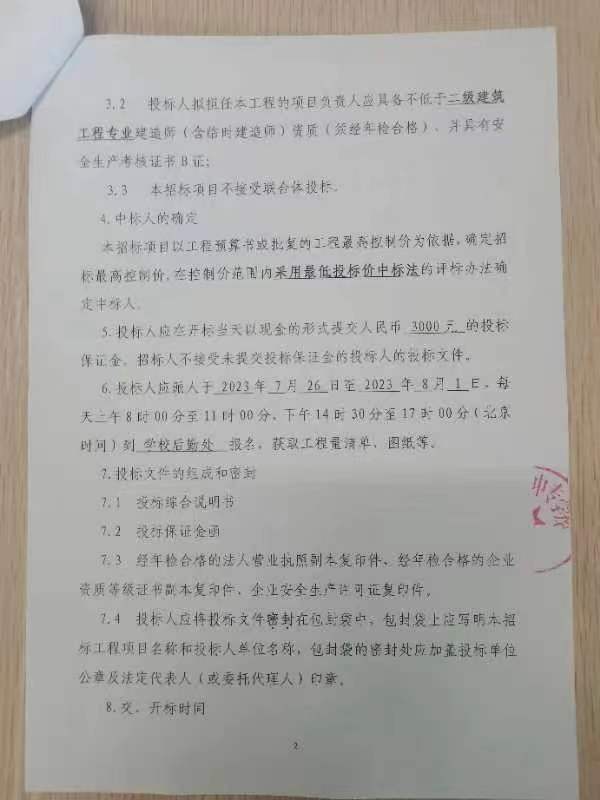 3.2 投标人拟担任本工程的项目负责人应具备不低于二级建筑
工程专业建造师（含临时建造师）资质（须经年检合格）、并具有安
全生产考核证书B证；
3.3 本招标项目不接受联合体投标。
4.中标人的确定
本招标项目以工程预算书或批复的工程最高控制价为依据，确定招
标最高控制价，在控制价范围内采用最低投标价中标法的评标办法确
定中标人。
5.投标人应在开标当天以现金的形式提交人民币 3000元 的投标
保证金。招标人不接受未提交投标保证金的投标人的投标文件。
6.投标人应派人于 2023 年 7 月 26 日至 2023 年 8 月 1 日，每
天上午8时00分至11时00分、下午14时30分至17时00分（北京
时间）到 学校后勤处 报名，获取工程量清单、图纸等。
7.投标文件的组成和密封
7.1 投标综合说明书
7.2 投标保证金函
7.3 经年检合格的法人营业执照副本复印件、经年检合格的企业
资质等级证书副本复印件、企业安全生产许可证复印件。
7.4 投标人应将投标文件密封在包封袋中，包封袋上应写明本招
标工程项目名称和投标人单位名称，包封袋的密封处应加盖投标单位
公章及法定代表人（或委托代理人）印章。
8.交、开标时间
2